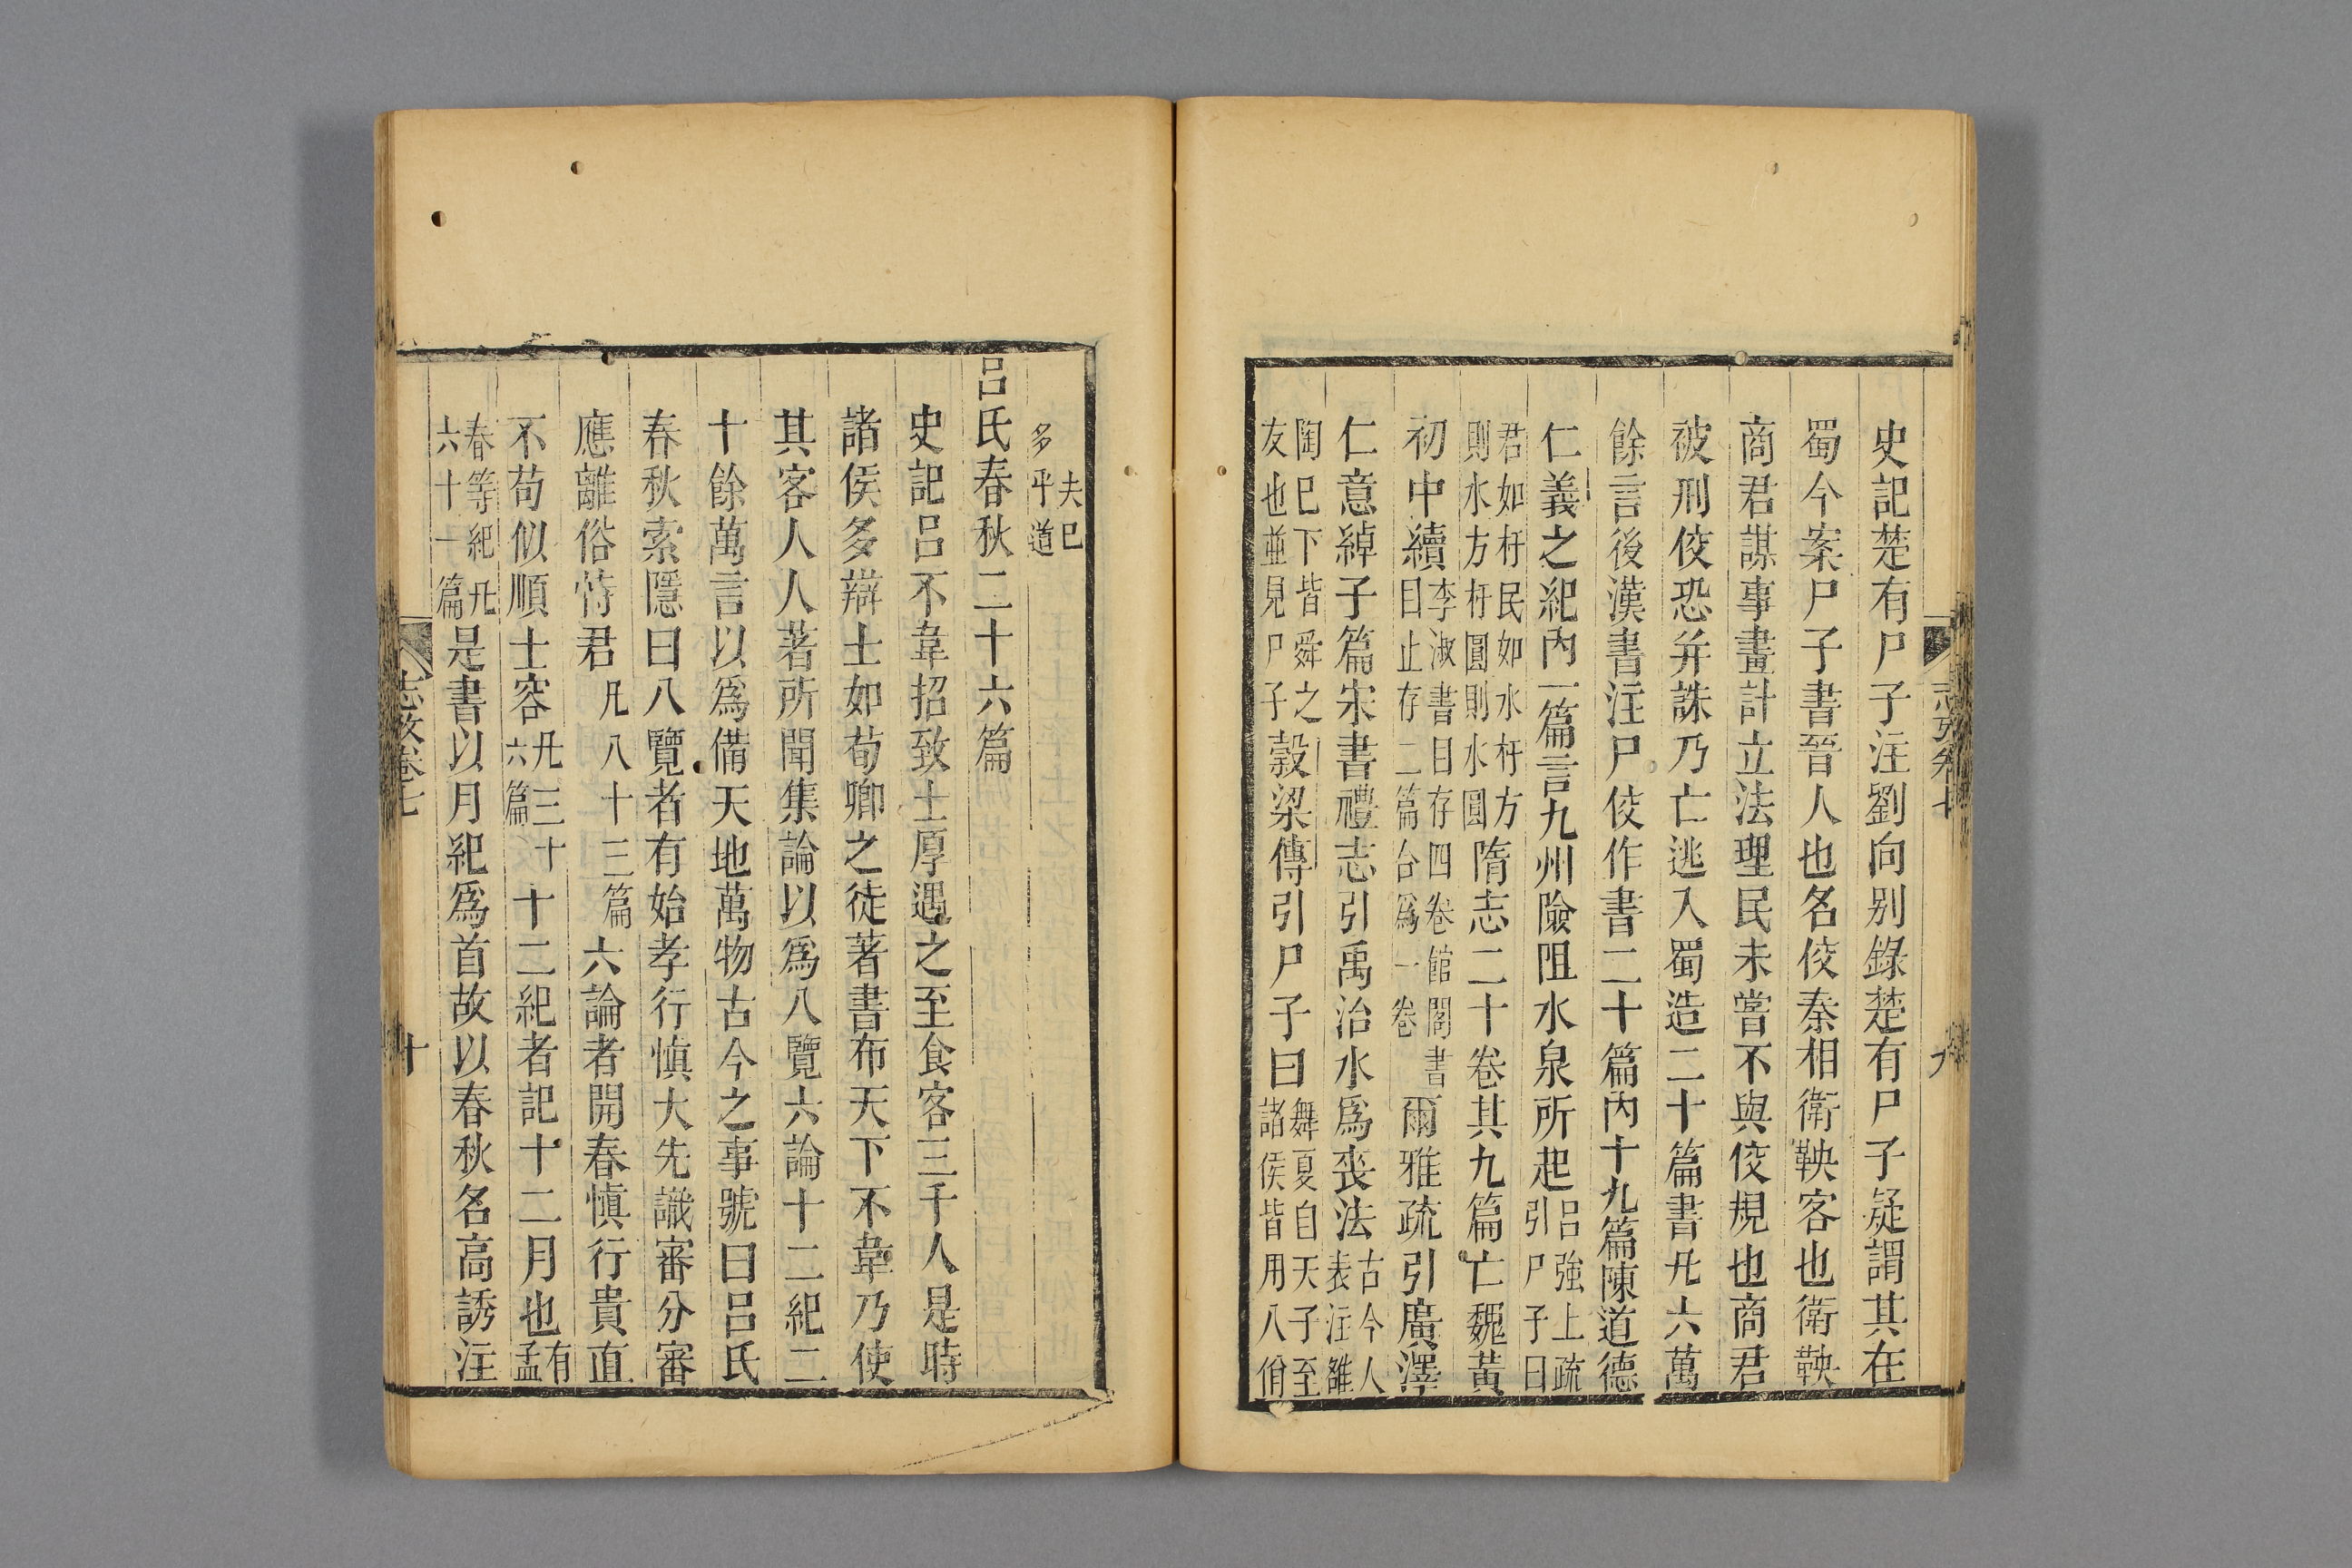 史記楚有尸子注劉向别錄楚有尸子疑謂其在
蜀今案尸子書晉人也名佼秦相衛鞅客也衛鞅
商君謀事畫計立法理民未嘗不與佼規也商君
被刑佼恐并誅乃亡逃入蜀造二十篇書凡六萬
餘言後漢書注尸佼作書二十篇内十九篇陳道德
仁義之紀内一篇言九州險阻水泉所起
呂強上疏
引尸子曰
君如杅民如水杅方
則水方杅圓則水圓
隋志二十卷其九篇亡魏黃
初中續
李淑書目存四卷館閣書
目止存二篇合爲一卷
爾雅疏引廣澤
仁意綽子篇宋書禮志引禹治水爲喪法
古今人
表注雒
陶已下皆舜之
友也並見尸子
穀梁傳引尸子曰
舞夏自天子至
諸侯皆用八佾
志攷卷七
九
夫已
多平道
呂氏春秋二十六篇
史記呂不韋招致士厚遇之至食客三千人是時
諸侯多辯士如荀卿之徒著書布天下不韋乃使
其客人人著所聞集論以爲八覽六論十二紀二
十餘萬言以爲備天地萬物古今之事號曰呂氏
春秋索隱曰八覽者有始孝行愼大先識審分審
應離俗恃君
凡八十三篇
六論者開春愼行貴直
不苟似順士容
凡三十
六篇
十二紀者記十二月也
有
孟
春等紀凡
六十一篇
是書以月紀爲首故以春秋名高誘注
志攷卷七
十